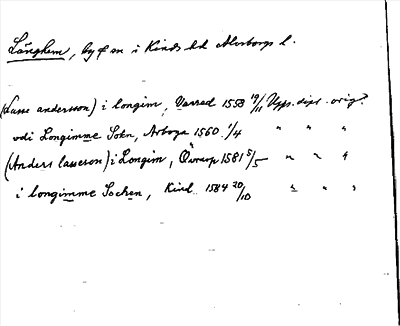 Länghem, by o sn i Kinds hd Älvsborgs l.
(Lasse andersson) i longim, Varred 1558 19/11 Upps. dipl. orig?
vdi Longimme Sokn, Arboga 1560 1/4 " " "
(Anders lasseson) i Longim, 1581 5/5 " " "
i longimme Sochen, Kind 1584 20/10 " " "